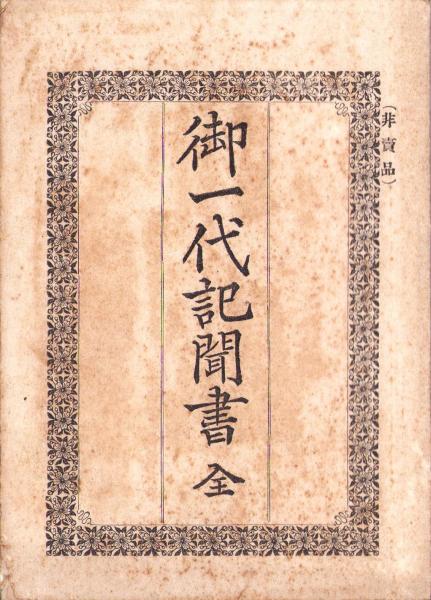 (非賣品)
御一代記聞書 全